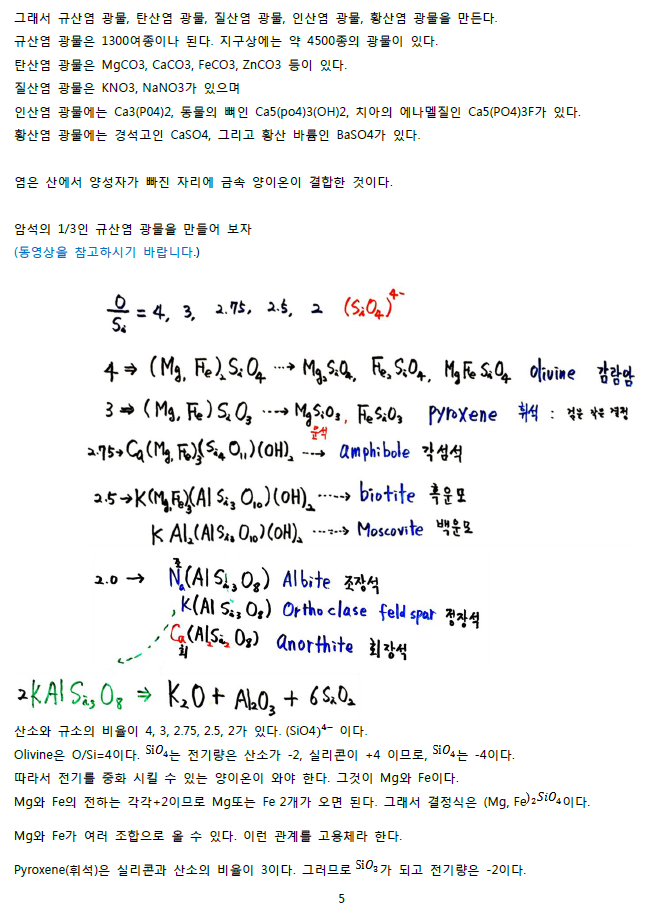 그래서 규산염 광물, 탄산염 광물, 질산염 광물, 인산염 광물, 황산염 광물을 만든다.
규산염 광물은 1300여종이나 된다. 지구상에는 약 4500종의 광물이 있다.
탄산염 광물은 MgCO3, CaCO3, FeCO3, ZnCO3 등이 있다.
질산염 광물은 KNO3, NaNO3가 있으며
인산염 광물에는 Ca3(P04)2, 동물의 뼈인 Ca5(po4)3(OH)2, 치아의 에나멜질인 Ca5(PO4)3F가 있다.
황산염 광물에는 경석고인 CaSO4, 그리고 황산 바륨인 BaSO4가 있다.
염은 산에서 양성자가 빠진 자리에 금속 양이온이 결합한 것이다.
암석의 1/3인 규산염 광물을 만들어 보자
(동영상을 참고하시기 바랍니다.)
O/Si = 4, 3, 2.75, 2.5, 2 (SiO4)4-
4 ⇒ (Mg, Fe)2SiO4 ⇢ Mg2SiO4, Fe2SiO4, MgFeSiO4 Olivine 감람암
3 ⇒ (Mg, Fe)SiO3 ⇢ MgSiO3, FeSiO3 Pyroxene 휘석 : 검은 작은 결정
운석
2.75→Ca(Mg,Fe)3(Si4O11)(OH)2 ⇢ amphibole 각섬석
2.5→K(Mg,Fe)3(AlSi3O10)(OH)2 ⇢ biotite 흑운모
KAl2(AlSi3O10)(OH)2 ⇢ Moscovite 백운모
조
2.0 → Na(AlSi3O8) Albite 조장석
K(AlSi3O8) Orthoclase feldspar 정장석
Ca(Al2Si2O8) Anorthite 회장석
회
2KAlSi3O8 ⇒ K2O + Al2O3 + 6SiO2
산소와 규소의 비율이 4, 3, 2.75, 2.5, 2가 있다. (SiO4)4− 이다.
Olivine은 O/Si=4이다. SiO4는 전기량은 산소가 -2, 실리콘이 +4 이므로, SiO4는 -4이다.
따라서 전기를 중화 시킬 수 있는 양이온이 와야 한다. 그것이 Mg와 Fe이다.
Mg와 Fe의 전하는 각각+2이므로 Mg또는 Fe 2개가 오면 된다. 그래서 결정식은 (Mg, Fe)2SiO4이다.
Mg와 Fe가 여러 조합으로 올 수 있다. 이런 관계를 고용체라 한다.
Pyroxene(휘석)은 실리콘과 산소의 비율이 3이다. 그러므로 SiO3가 되고 전기량은 -2이다.
5